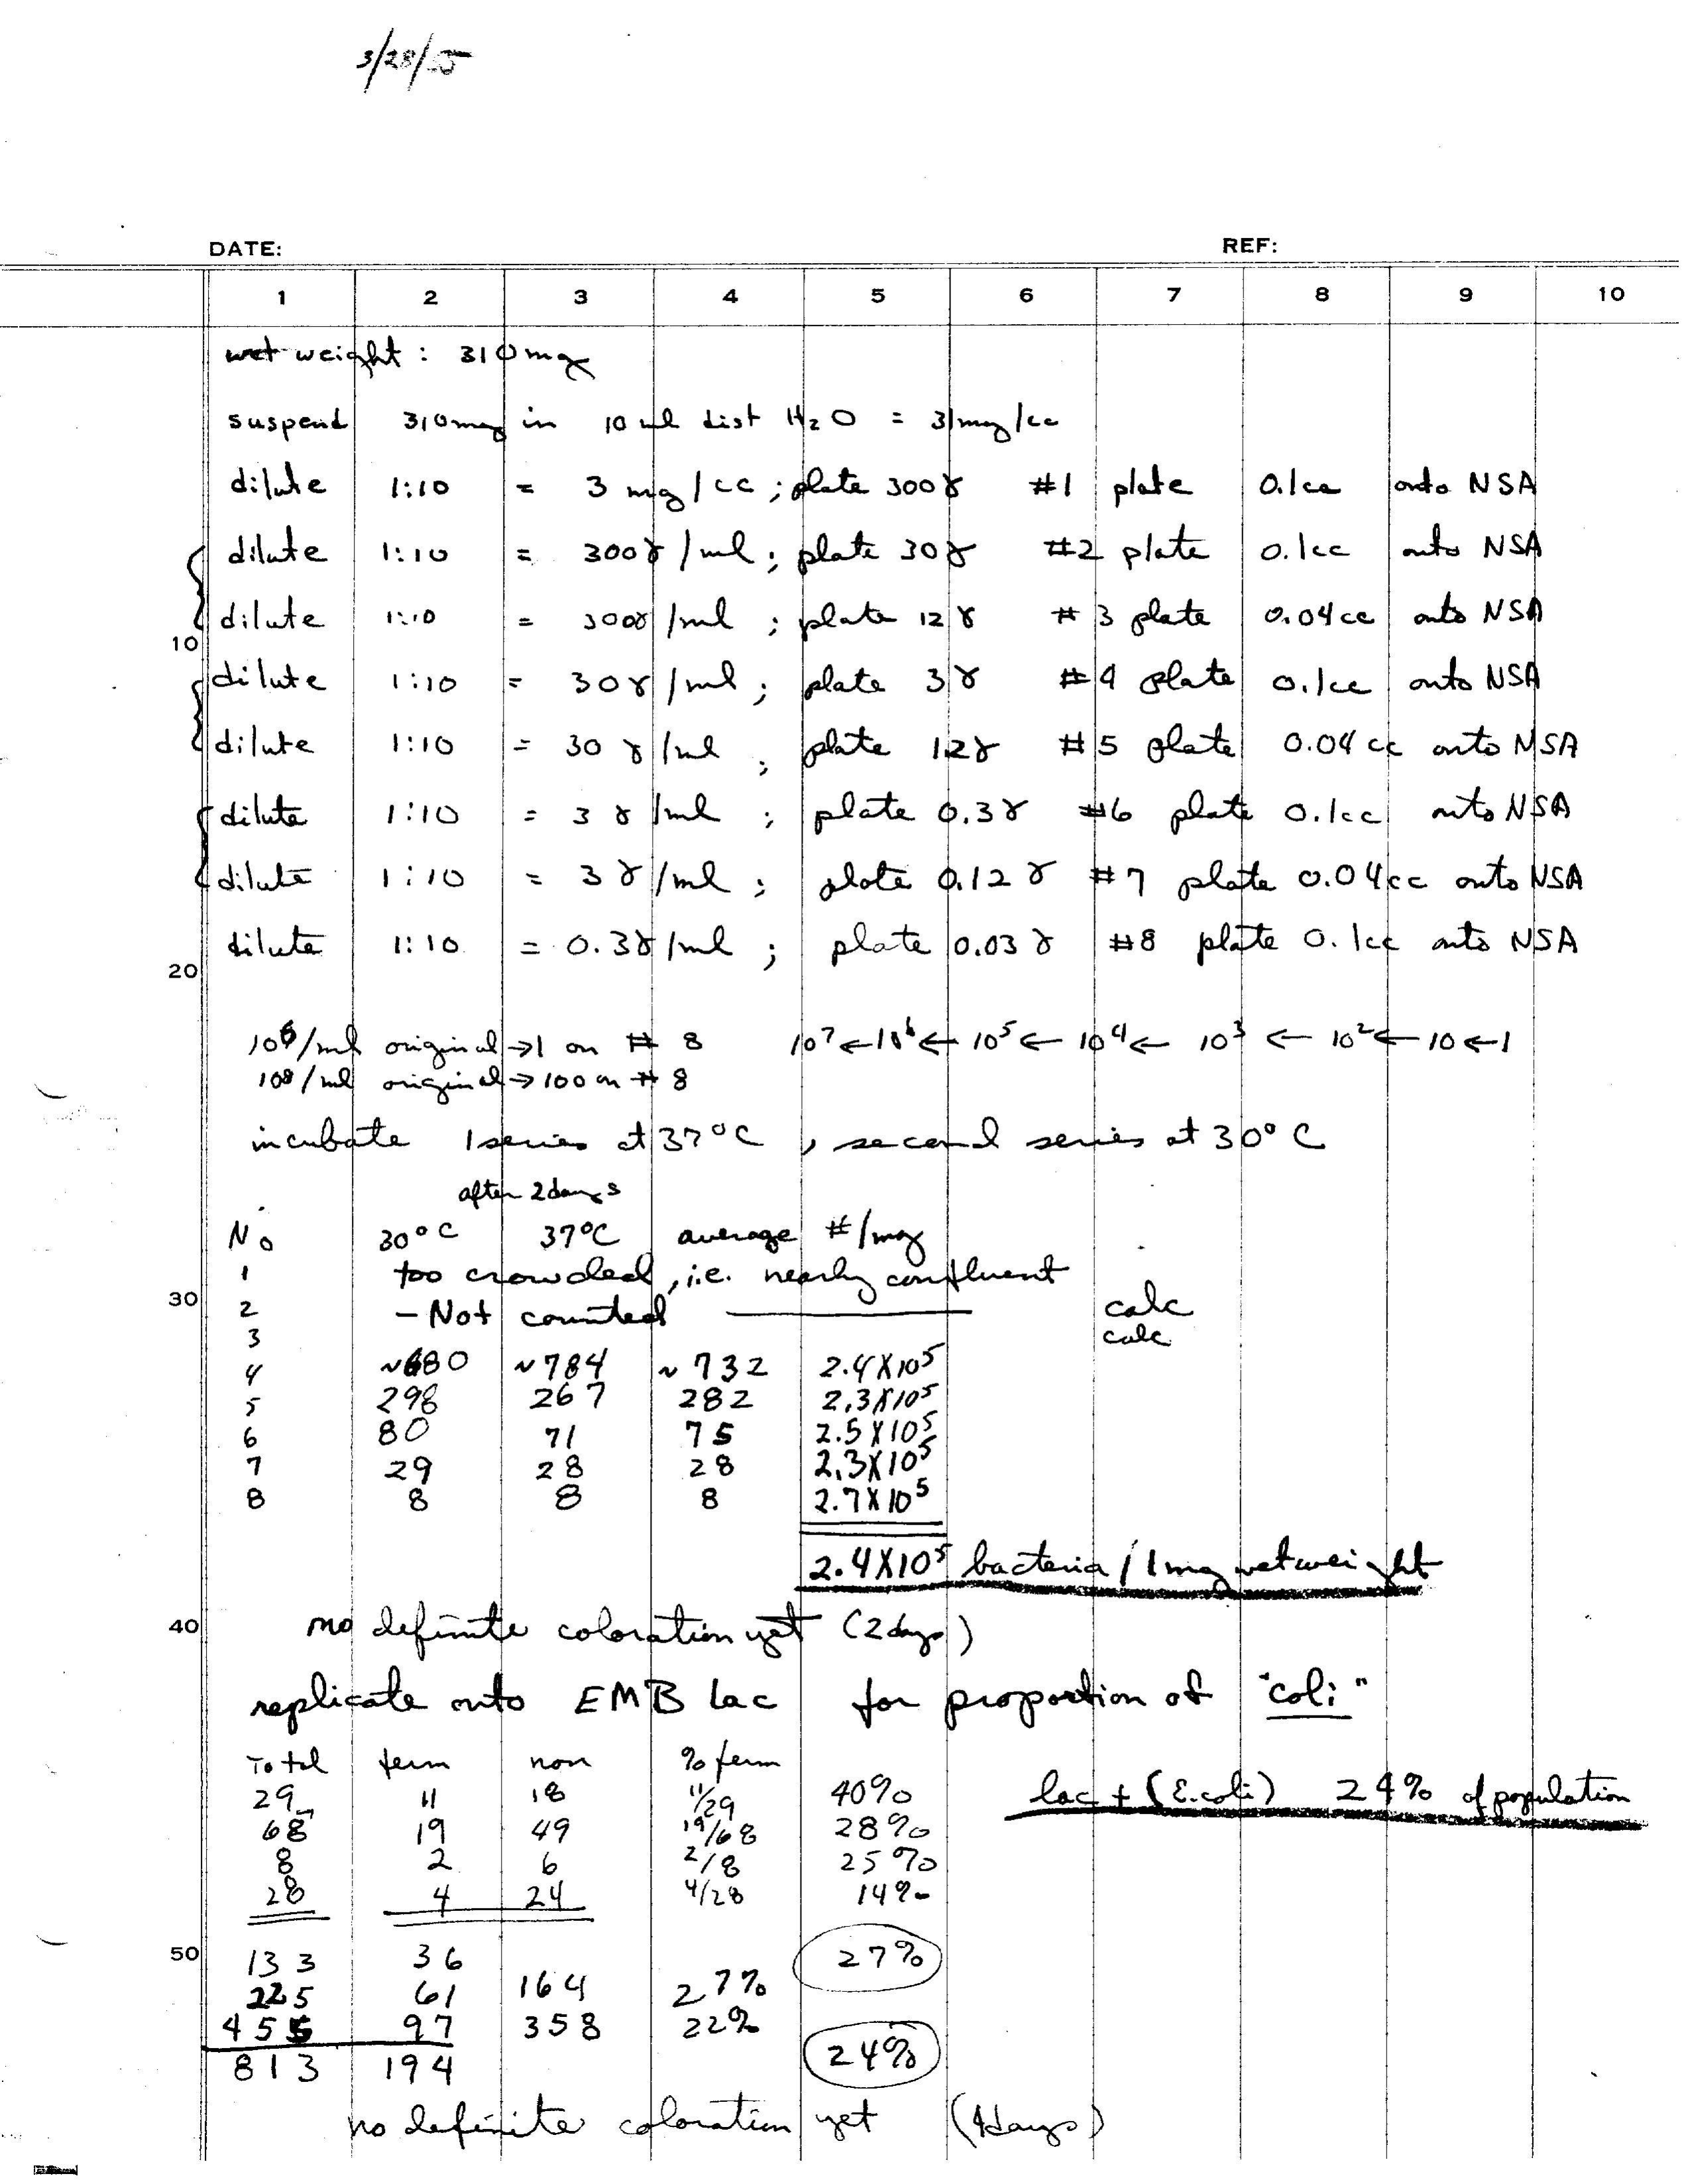 3/28/55
DATE: REF:
1 2 3 4 5 6 7 8 9 10
wet weight : 310 mg
suspend 310 mg in 10 ml dist H2O = 31 mg/cc
dilute 1:10 = 3 mg/cc ; plate 300γ #1 plate 0.1cc onto NSA
dilute 1:10 = 300γ/ml ; plate 30γ #2 plate 0.1cc onto NSA
dilute 1:10 = 300γ/ml ; plate 12γ #3 plate 0.04cc onto NSA
10
dilute 1:10 = 30γ/ml ; plate 3γ #4 plate 0.1cc onto NSA
dilute 1:10 = 30γ/ml ; plate 12γ #5 plate 0.04cc onto NSA
dilute 1:10 = 3γ/ml ; plate 0.3γ #6 plate 0.1cc onto NSA
dilute 1:10 = 3γ/ml ; plate 0.12γ #7 plate 0.04cc onto NSA
dilute 1:10 = 0.3γ/ml ; plate 0.03γ #8 plate 0.1cc onto NSA
20
10⁶/ml original → 1 on # 8 10⁷ ← 10⁶ ← 10⁵ ← 10⁴ ← 10³ ← 10² ← 10 ← 1
10⁸/ml original → 100 on # 8
incubate 1 series at 37°C , second series at 30°C
after 2 days
No 30°C 37°C average #/mg
1 too crowded, i.e. nearly confluent
30
2 – Not counted calc
3 calc
4 ~680 ~784 ~732 2.4X10⁵
5 298 267 282 2.3X10⁵
6 80 71 75 2.5X10⁵
7 29 28 28 2.3X10⁵
8 8 8 8 2.7X10⁵
2.4X10⁵ bacteria / 1 mg wet weight
40
no definite coloration yet (2 days)
replicate onto EMB lac for proportion of "coli"
Total ferm non % ferm
29 11 18 11/29 40% lac + (E. coli) 24% of population
68 19 49 19/68 28%
8 2 6 2/8 25%
28 4 24 4/28 14%
50
133 36 27%
225 61 164 27%
455 97 358 22%
813 194 24%
no definite coloration yet (4 days)